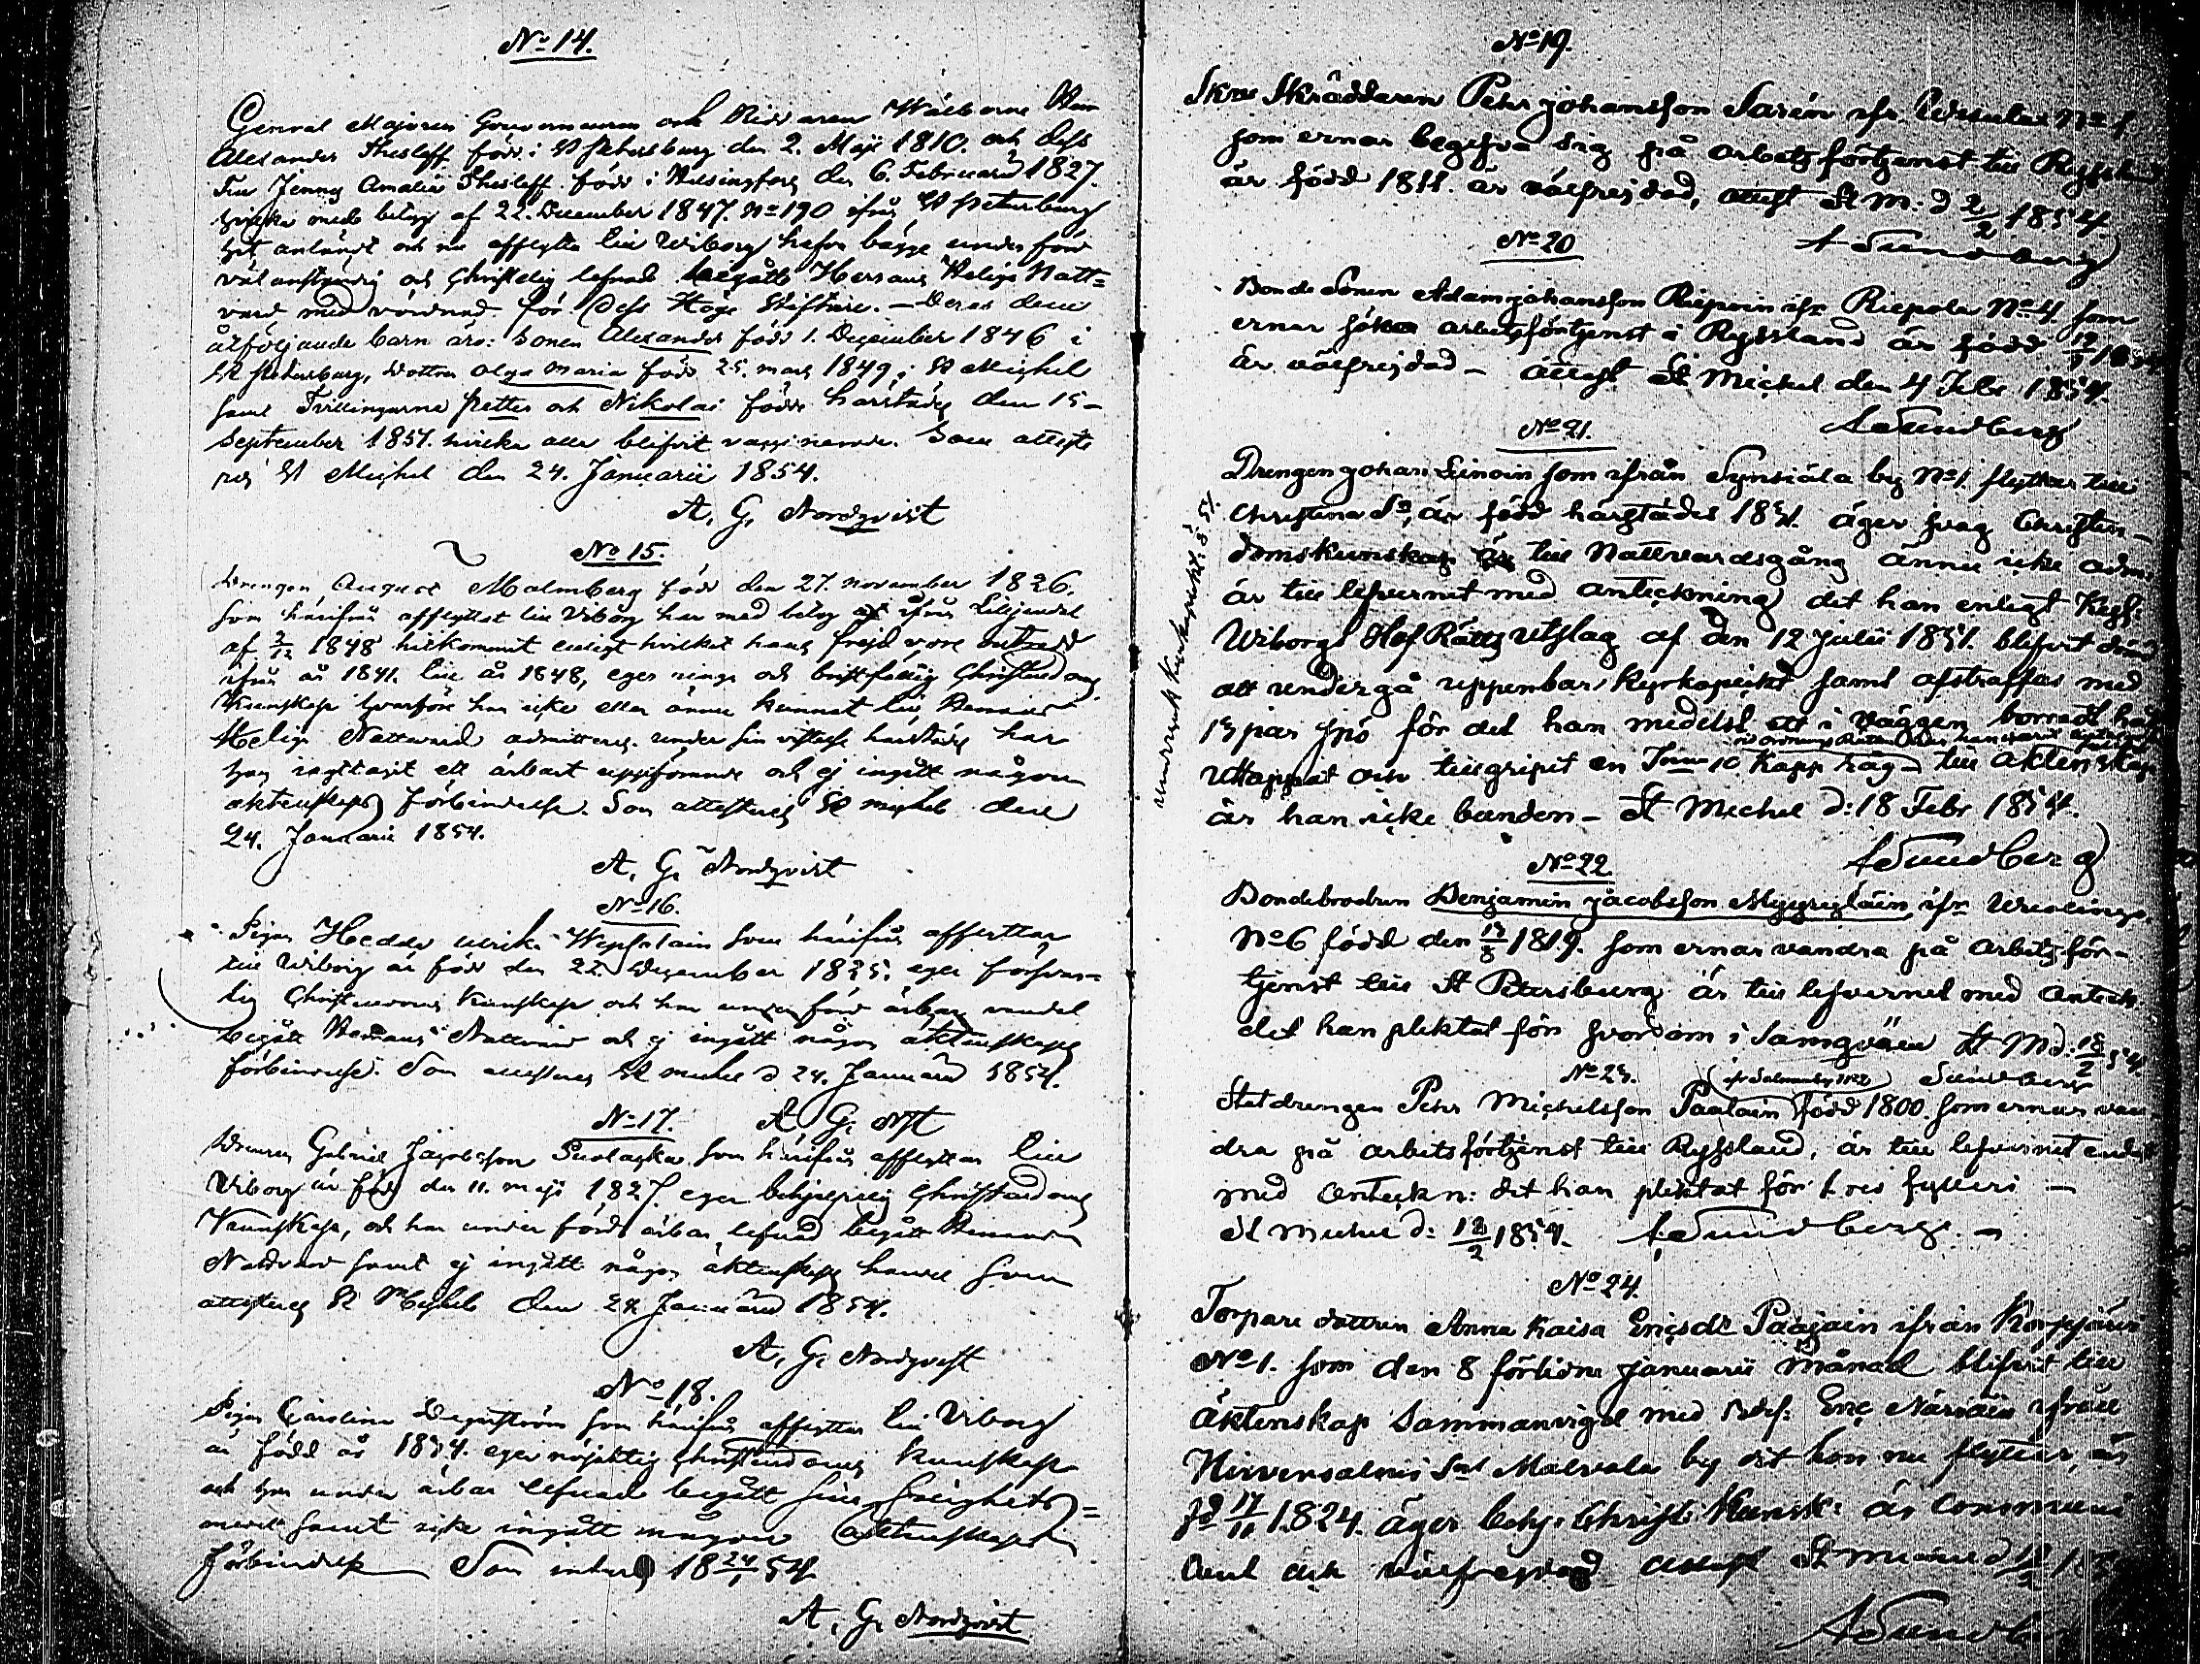 No 14.
General Majoren Gouverneuren och Riddaren Wälborne Herr
Alexander Thesleff född i St Petersburg den 2. Maji 1810. och dess
Fru Jenny Amalia Thesleff född i Helsingfors den 6. Februarii 1827.
hvilka med betyg af 22. December 1847. No 190 ifrån St Petersburg
hit anländt och nu afflytta till Wiborg hafva bägge under förd
välanständig och Christelig lefnad begått Herrans Heliga Natt=
vard med vördnad för dess Höge Stiftare. — Deras dem
åtföljande barn äro: Sonen Alexander född 1. December 1846 i
St Petersburg, dottren Olga Maria född 25. mars 1849 i St Michel
samt Tvillingarne Petter och Nikolai födde härstädes den 15
September 1851. hvilka alla blifvit vaccinerade. Som attesteras
St Michel den 24. Januarii 1854.
A. G. Nordqvist
No 15.
Drengen August Malmberg född den 27. november 1826.
som härifrån afflyttat till Viborg har med betyg ifrån
af 2/12 1848 hitkommit enligt hvilket hans frejd vore
ifrån år 1841. till år 1848, eger ringa och bristfällig Christendoms
Kunskap hvarföre han icke eller ännu kunnat till Herrans
Heliga Nattvard admitteras. under sin vistelse härstädes har
han iagttagit ett ärbart uppförande och ej ingått någon
äktenskaps förbindelse. Som attesteras St Michel den
24. Januarii 1854.
A. G. Nordqvist
No 16.
Pigan Hedda Ulrika som härifrån afflyttar
till Wiborg är född den 22. December 1835. eger försvar=
lig Christendoms Kunskap och har under förd ärbar vandel
begått Herrans Nattvard och ej ingått någon äktenskaps
förbindelse. Som attesteras St Michel d 24. Januarii 1854.
A. G. Nqt
No 17.
Drengen Gabriel Jacobsson som härifrån afflyttar till
Viborg är född den 11. maji 1827. eger behjelpelig Christendoms
Kunskap, och har under förd ärbar lefnad begått Herrans
Nattvard samt ej ingått någon äktenskaps handel som
attesteras St Michel den 24. Januarii 1854.
A. G. Nordqvist
No 18.
Pigan Carolina som härifrån afflyttar till Viborg
är född år 1834. eger nöjaktig Christendoms Kunskap
och har under ärbar lefnad begått sine Salighets=
medel samt icke ingått någon äktenskaps
förbindelse Som intygas 18 24/1 54
A. G. Nordqvist
No 19.
Skräddaren Pehr Johansson Sarén ifr No 1
som ernar begifva sig på arbetsförtjenst till Ryssland
är född 1811. är välfrejdad, attest St M. d 2/2 1854
A Sundberg
No 20
Bonde Sonen Adam Johansson Riepoin ifr Riepola No 4. som
ernar söka arbetsförtjenst i Ryssland är född
är välfrejdad — attest St Michel den 4 Febr 1854.
A Sundberg
No 21.
Drengen Johan Leinoin som ifrån Synsiälä by No 1. flyttar till
Christina Sn, är född härstädes 1831. äger svag Christen-
domskunskap till Nattvardsgång ännu icke adm:
är till lefvernet med anteckning det han enligt Keys:
Wiborgs Hof Rätts utslag af den 12 Julii 1851. blifvit dömd
att undergå uppenbar Kyrkoplikt samt afstraffas med
13 par spö för det han medelst ett i väggen borradt hål
uttappat och tillgripit en Tunna 10 Kapp råg — till äktenskap
är han icke bunden — St Michel d: 18 Febr 1854.
A Sundberg
undergått Kyrkoplikt 51.
No 22
Bondebrodren Benjamin Jacobsson Myyryläin ifr
No 6 född den 13/8 1819. som ernar vandra på arbets för-
tjenst till St Petersburg är till lefvernet med anteckn.
det han pliktat för svordom i Samqväm St M d: 18/2 54
Sundberg
No 23.
Statdrengen Pehr Michelsson Paalain född 1800. som ernar van
dra på arbetsförtjenst till Ryssland, är till lefvernet endast
med anteckn: det han pliktat för 1. res fylleri —
St Michel d: 18/2 1854. A Sundberg. —
No 24.
Torpare dottren Anna Kaisa Ericsdr Paajain ifrån Korpijärvi
No 1. som den 8 förlidne Januarii månad blifvit till
äktenskap sammanvigd med Eric Näriäin ifrån
Hirvensalmi Sn Malvala by dit hon nu flyttar, är
fd 17/11 1824. äger behj. Christ: Kunsk: är Communi
cant och välfrejdad attest St Michel d
A Sundb